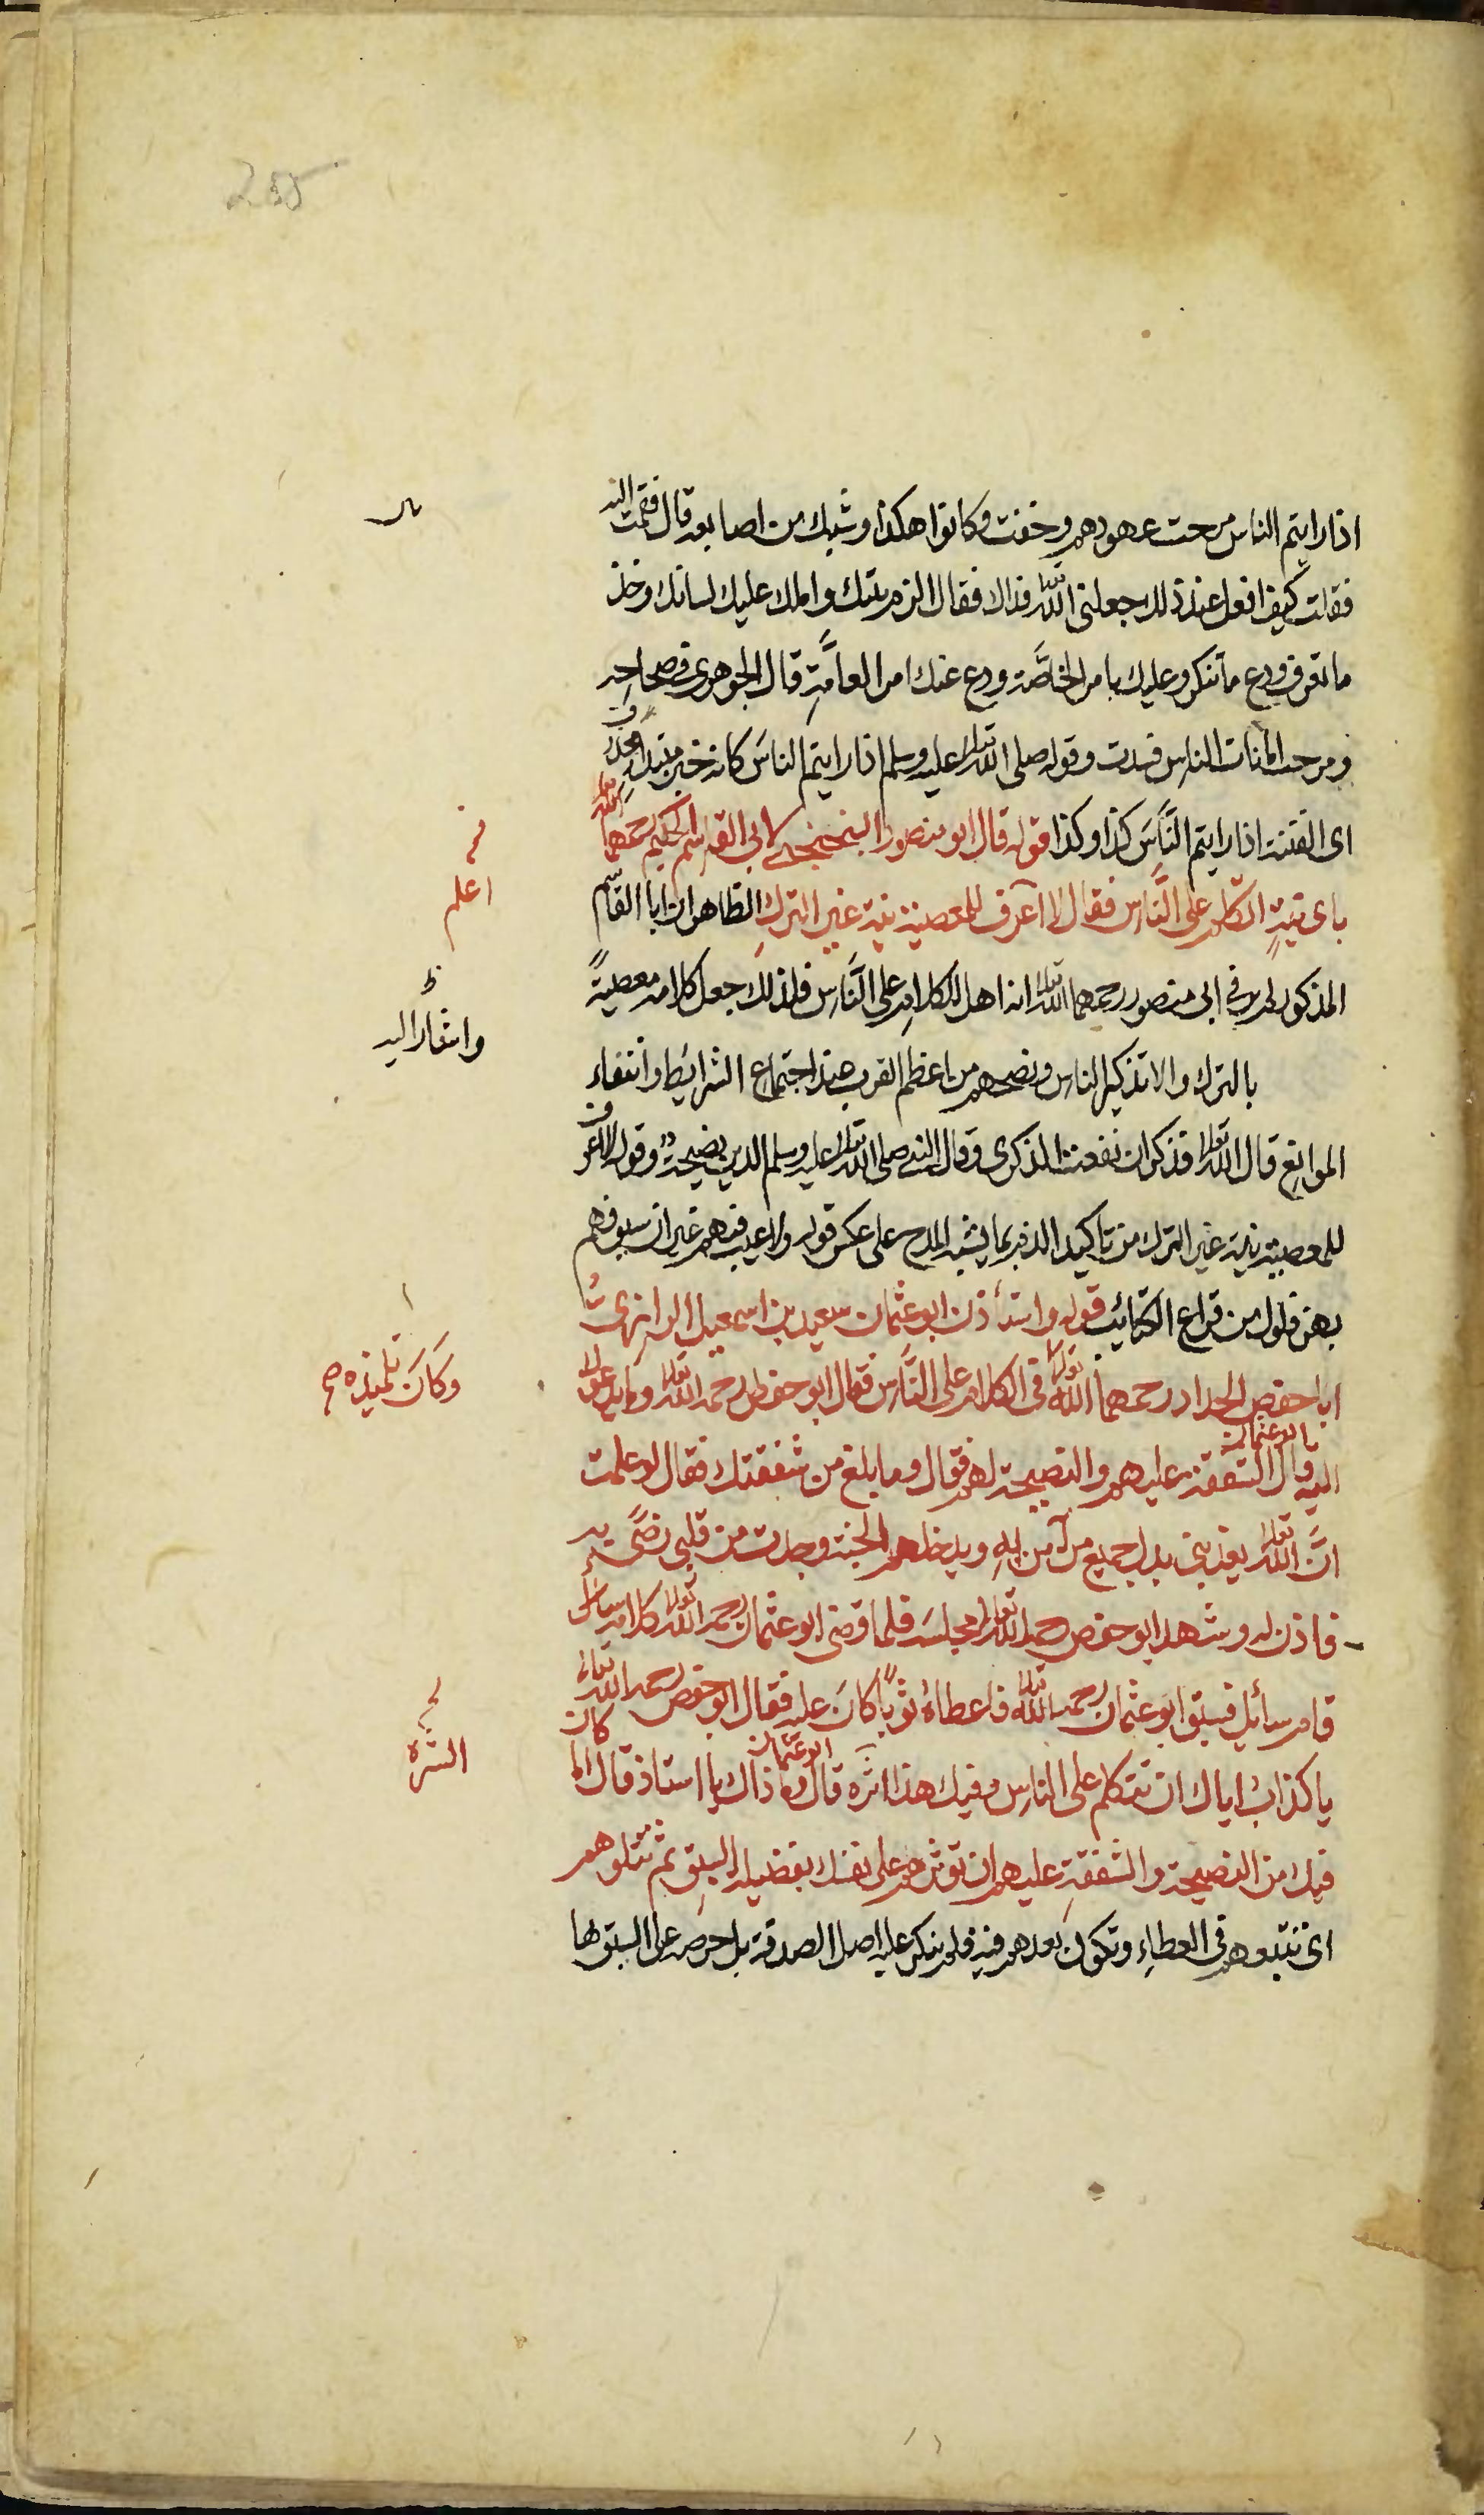 اذا رايتم الناس مرجت عهودهم وخفت وكانوا هكذا وشبك بين اصابعه قال فقمت اليه
فقلت كيف افعل عند ذلك جعلنى الله تعالى فداك فقال الزم بيتك واملك عليك لسانك وخذ
ما تعرف ودع ما تنكر وعليك بامر الخاصَّة ودع عنك امر العامَّةِ قال الجوهرى فى صحاحه
ومرجت امانات الناس فسدت وقوله صلى الله تعالى عليه وسلم اذا رايتم الناسَ كانه خبر مبتدا محذوف
اى الفتنة اذا رايتم النَّاسَ كذا وكذا قوله قال ابو منصور لابى القاسم الحكيم رحمهما الله تعالى
باى نيّةٍ اتكلم على النَّاس فقال لا اعرف للمعصية نية غير التركِ الظاهر ان ابا القاسم
المذكور لم ير فى ابى منصور رحمهما الله تعالى انه اهل للكلامِ على النَّاس فلذلك جعل كلامه معصيةً
بالترك والا تذكير الناس ونصحهم من اعظم القرب عند اجتماع الشرائط وانتفاء
الموانع قال الله تعالى فذكر ان نفعت الذكرى وقال النبى صلى الله تعالى عليه وسلم الدين نصيحة وقوله لا اعرف
للمعصية نية غير الترك من تاكيد الذم بما يشبه المدح على عكس قوله ولا عيب فيهم غير ان سيوفهم
بهن فلول من قراع الكتائب قوله واستأذن ابو عثمان سعيد بن اسمعيل الرازى
ابا حفص الحداد رحمهما الله تعالى فى الكلام على النَّاس فقال ابو حفص رحمه الله تعالى وما يدعوك
اليه قال ابو عثمان الشفقة عليهم والنصيحة لهم فقال وما بلغ من شفقتك فقال لو علمت
انَّ الله تعالى يعذبنى بدل جميع من آمن به ويدخلهم الجنة وجدت من قلبى رضًى به
فاذن له وشهد ابو حفص رحمه الله تعالى مجلسَه فلما قضى ابو عثمان رحمه الله تعالى كلامه
قام سائل فسبق ابو عثمان رحمه الله تعالى فاعطاهُ ثوبًا كانَ عليه فقال ابو حفص رحمه الله تعالى
يا كذاب اياك ان تتكلم على الناس وفيك هذا الشره قال ابو عثمان وما ذاك يا استاذ قال اما كان
فيك من النصيحة والشفقةِ عليهم ان توثرهم على نفسك بفضيلة السبق ثم تتلوهم
اى تتبعوهم فى العطاءِ وتكون بعدهم فيه فلم ينكر عليه اصل الصدقة بل حرصه على السبق بها
اعلم
ظ
وكَانَ تلميذه صح
الشره